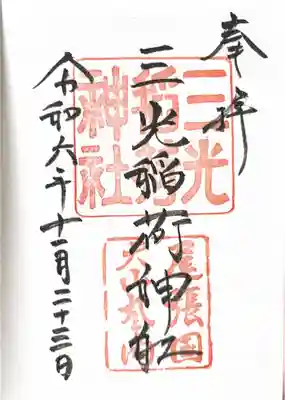 奉拝
三光稲荷神社
令和六年十一月二十三日
三光
稲荷
神社
尾張国
犬山